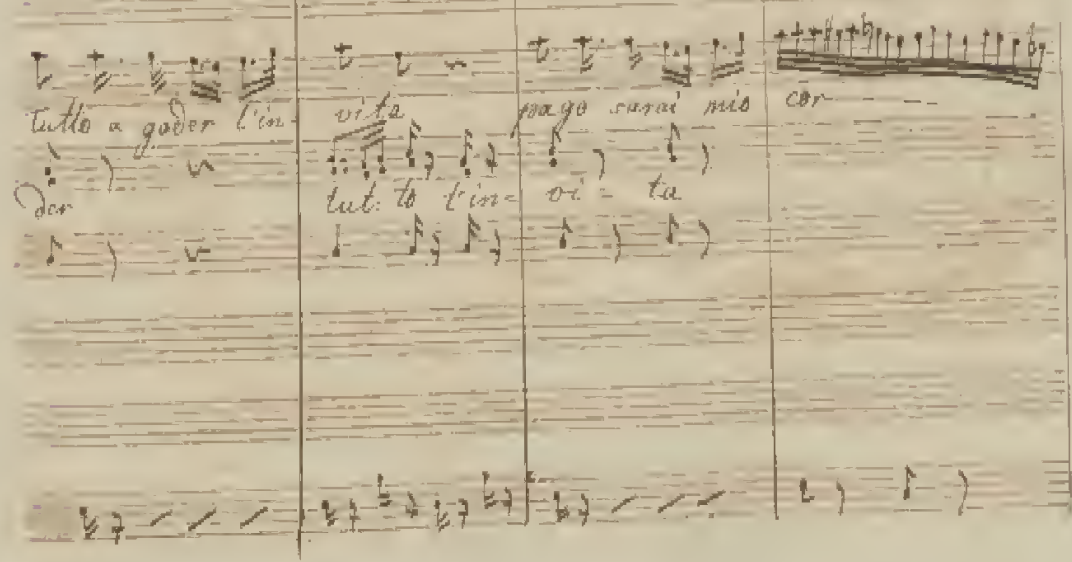 tutto a goder l'in- vita pago sarai mio cor - - -
der tut: to l'in= vi - ta